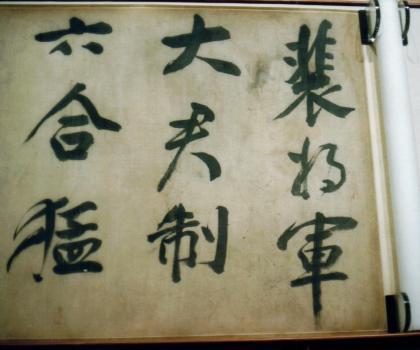 裴將軍
大君制
六合猛